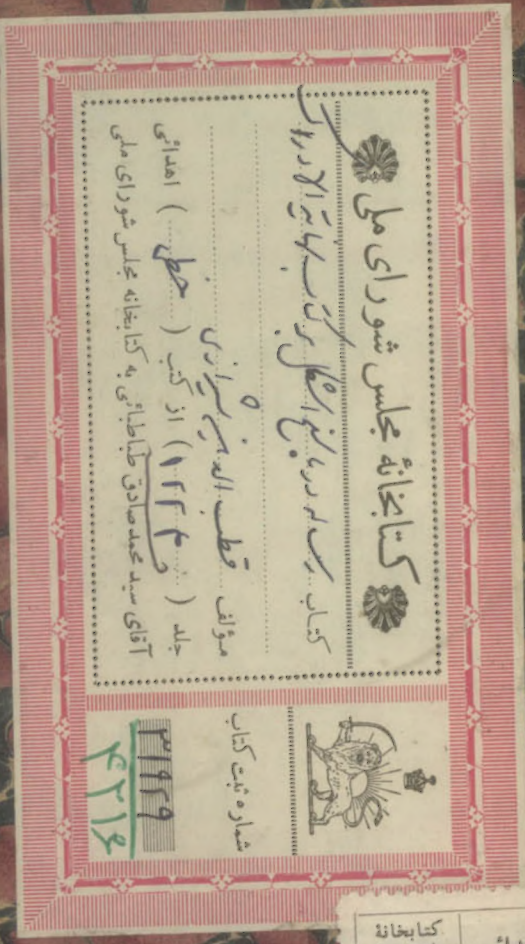 کتابخانهٔ مجلس شورای ملی
کتاب رساله در جواب اشکال بر کتاب نهایة الادراک
مؤلف قطب الدین شیرازی
جلد (۱۲۲۴) از کتب (خطی) اهدائی
آقای سید محمد صادق طباطبائی به کتابخانه مجلس شورای ملی
شماره ثبت کتاب
۳۱۹۲۹
۴۲۱۶
کتابخانهٔ